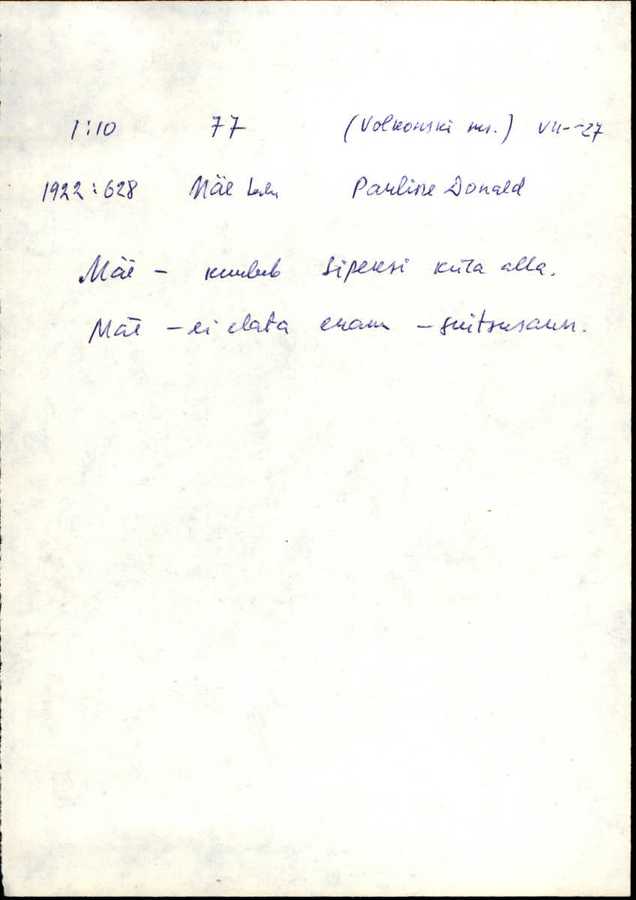 1:10 77 (Volkonski ms.) VII-27
1922:628 Mäe Pauline Donald
Mäe - kuulub Sipensi küla alla.
Mäe - ei elata enam - suitsusaun.